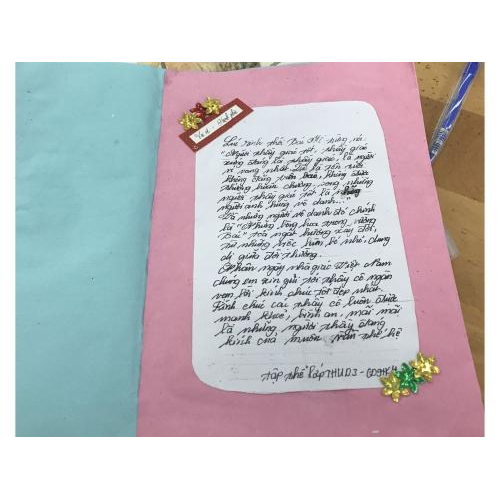 Lúc sinh thời Bác Hồ từng nói:
"Người thầy giáo tốt, thầy giáo
xứng đáng là thầy giáo, là người
vẻ vang nhất. Dù là tên tuổi
không đăng trên báo, không được
thưởng huân chương, song những
người thầy giáo tốt là những
người anh hùng vô danh..."
Và những người vô danh đó chính
là "Những bông hoa trong vườn
Bác" tỏa ngát hương cho đời,
từ những việc nhỏ bé, dung
dị giữa đời thường.
Nhân ngày nhà giáo Việt Nam
chúng em xin gửi tới thầy cô ngàn
vạn lời kính chúc tốt đẹp nhất.
Kính chúc các thầy cô luôn được
mạnh khoẻ, bình an, mãi mãi
là những người thầy đáng
kính của muôn vàn thế hệ
tập thể lớp